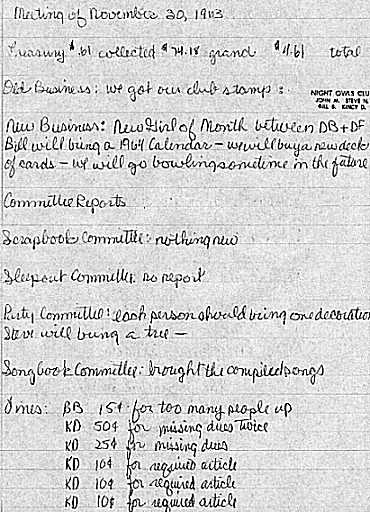 Meeting of November 30, 1963
Treasury $.61 collected $74.18 grand $ total
Old Business: we got our club stamp:
NIGHT OWLS CLU
JOHN M. STEVE N.
BILL B. KINCY D.
New Business: New Girl of Month between DB + DF
Bill will bring a 1964 Calendar - we will buy a new deck
of cards - we will go bowling sometime in the future
Committee Reports
Scrapbook Committee: nothing new
Sleepout Committee: no report
Party Committee: each person should bring one decoration
Steve will bring a tree -
Songbook Committee: brought the compiled songs
Fines: BB 15¢ for too many people up
KD 50¢ for missing dues twice
KD 25¢ for missing dues
KD 10¢ for required article
KD 10¢ for required article
KD 10¢ for required article